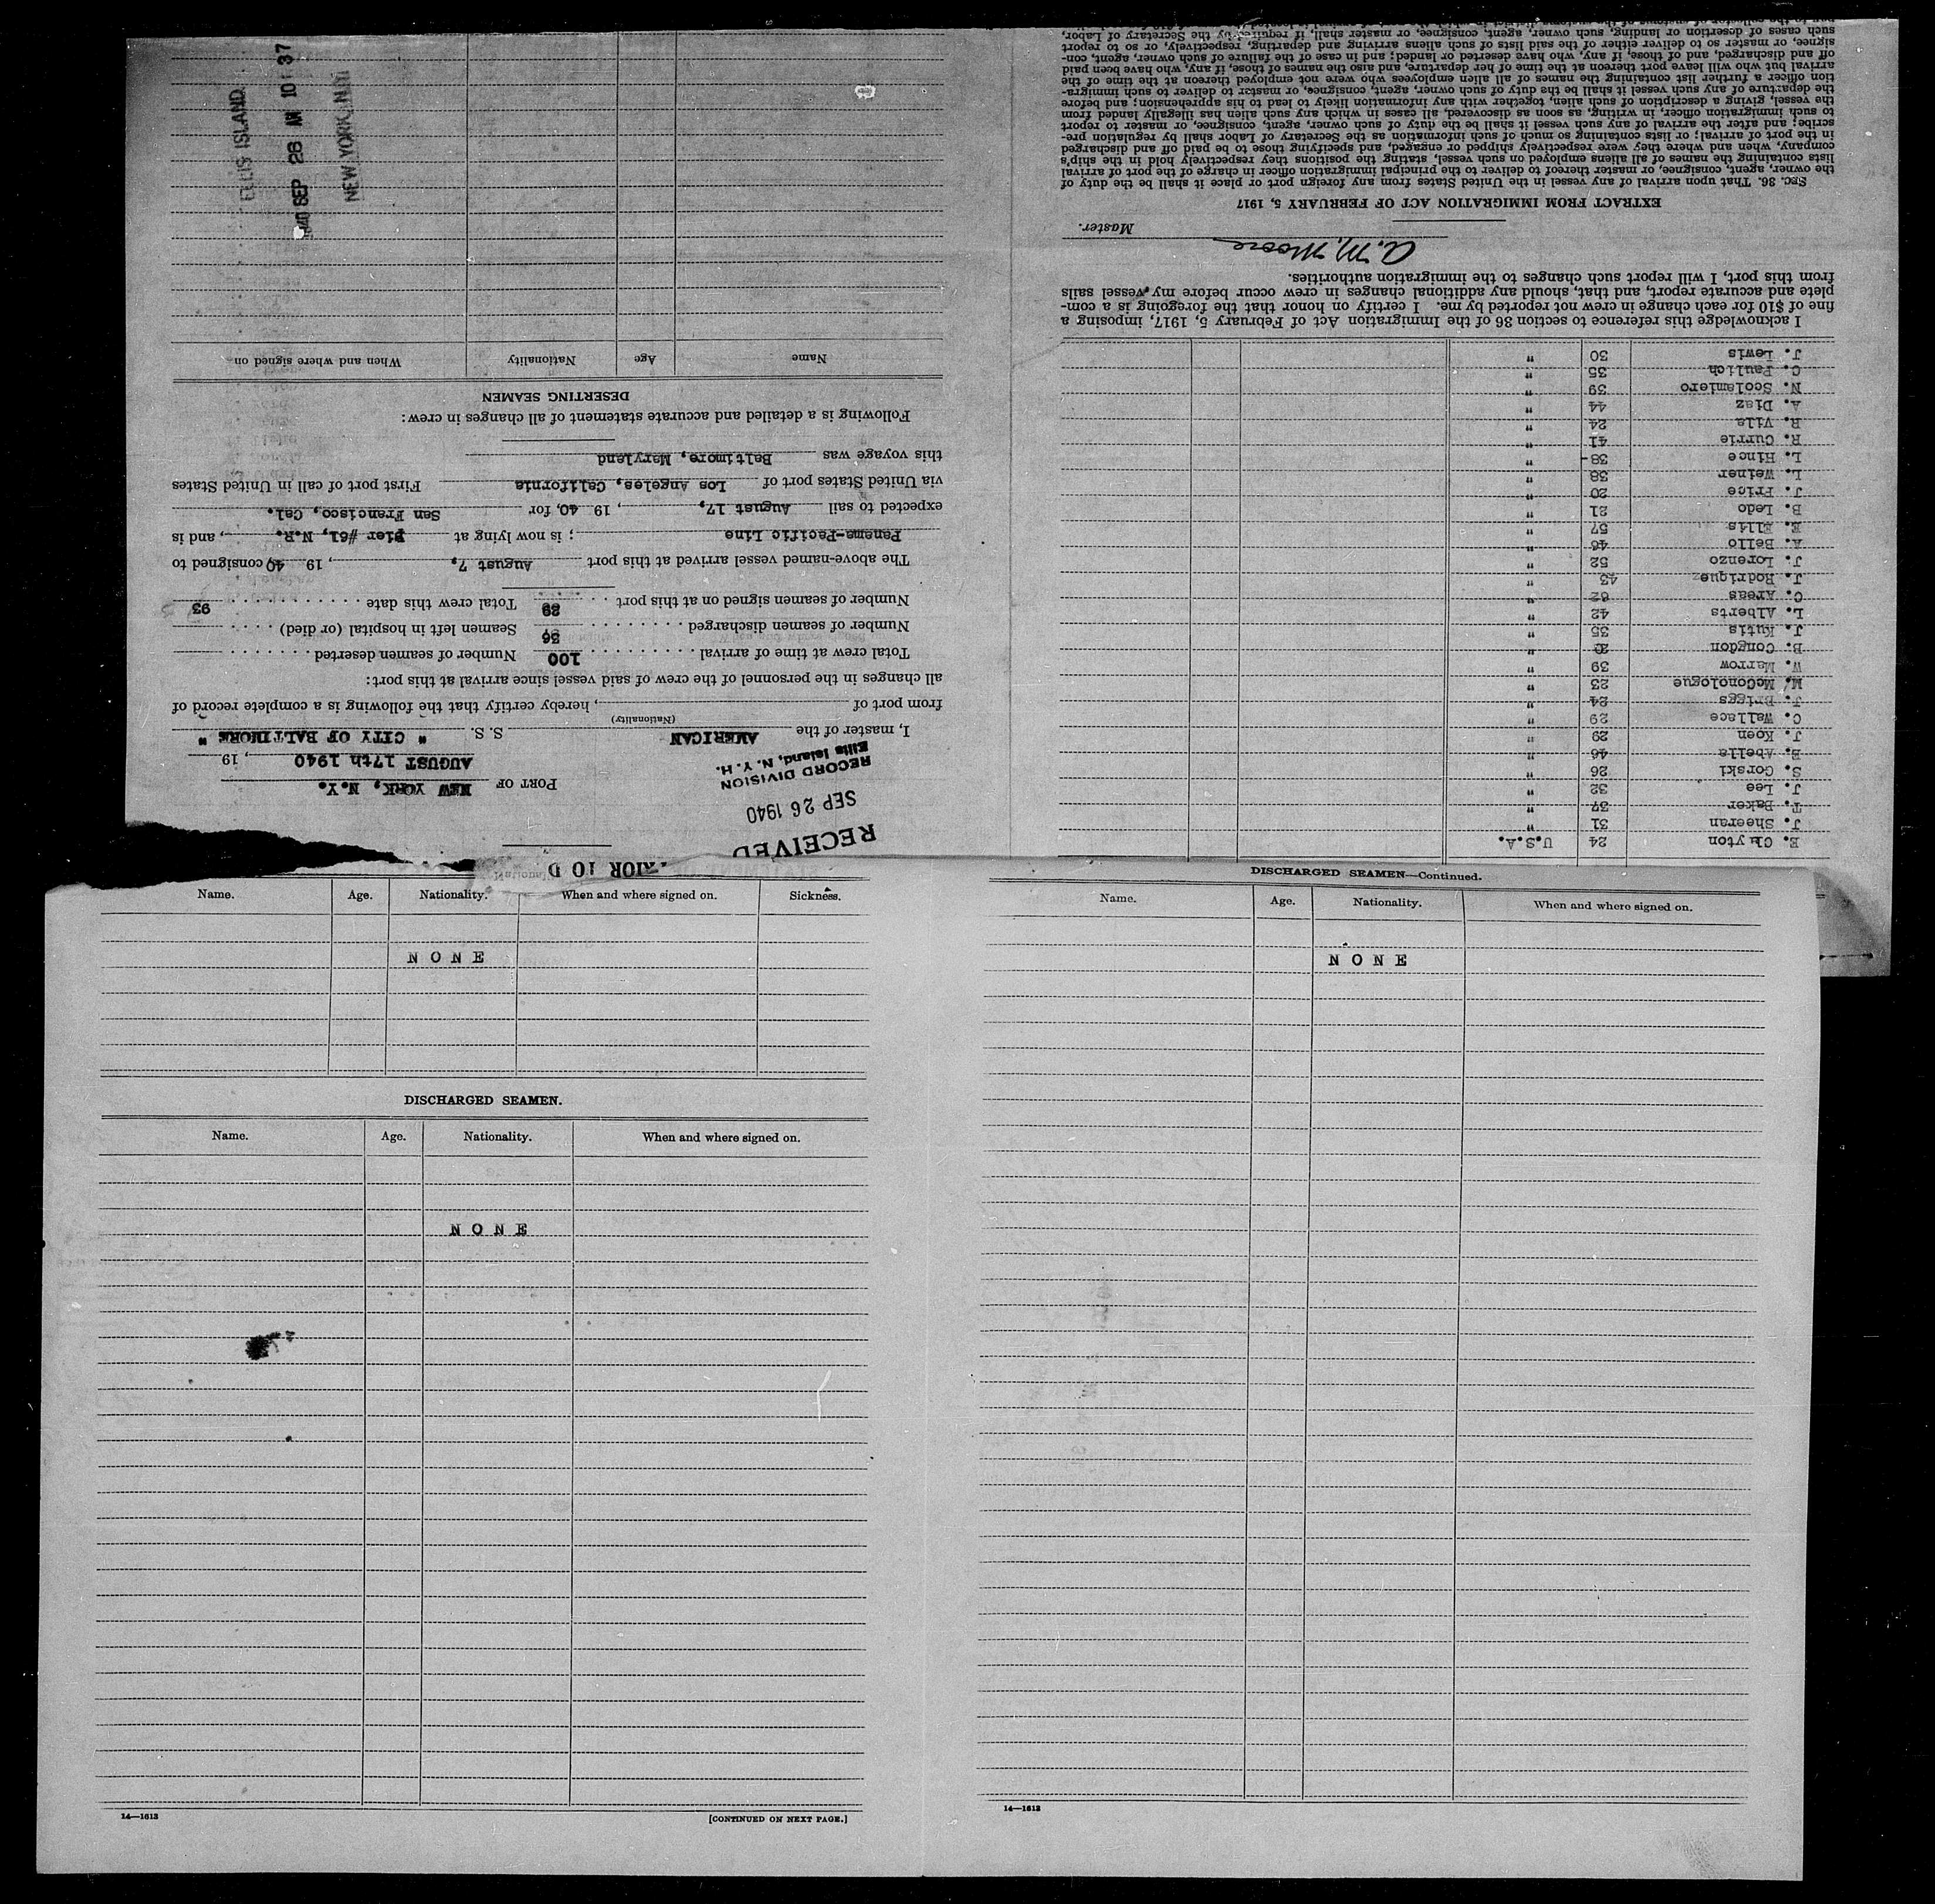 E. Clayton 24 U.S.A.
J. Sheeran 31 "
T. Baker 37 "
J. Lee 32 "
S. Gorski 26 "
E. Abella 46 "
J. Koen 29 "
C. Wallace 29 "
J. Briggs 24 "
M. McGonologue 23 "
W. Marrow 39 "
B. Congdon "
J. Kutis 35 "
L. Alberts 42 "
C. Areas 62 "
J. Rodriquez 43 "
J. Lorenzo 52 "
A. Bello 46 "
E. Ellis 57 "
B. Ledo 21 "
J. Price 20 "
L. Weiner 38 "
L. Hince 38- "
R. Currie 41 "
R. Vila 24 "
A. Diaz 44 "
N. Scolamiero 39 "
C. Paulich 35 "
J. Lewis 30 "
I acknowledge this reference to section 36 of the Immigration Act of February 5, 1917, imposing a
fine of $10 for each change in crew not reported by me. I certify on honor that the foregoing is a com-
plete and accurate report, and that, should any additional changes in crew occur before my vessel sails
from this port, I will report such changes to the immigration authorities.
A. M. Moore
Master.
EXTRACT FROM IMMIGRATION ACT OF FEBRUARY 5, 1917
SEC. 36. That upon arrival of any vessel in the United States from any foreign port or place it shall be the duty of
the owner, agent, consignee, or master thereof to deliver to the principal immigration officer in charge of the port of arrival
lists containing the names of all aliens employed on such vessel, stating the positions they respectively hold in the ship's
company, when and where they were respectively shipped or engaged, and specifying those to be paid off and discharged
in the port of arrival; or lists containing so much of such information as the Secretary of Labor shall by regulation pre-
scribe; and after the arrival of any such vessel it shall be the duty of such owner, agent, consignee, or master to report
to such immigration officer, in writing, as soon as discovered, all cases in which any such alien has illegally landed from
the vessel, giving a description of such alien, together with any information likely to lead to his apprehension; and before
the departure of any such vessel it shall be the duty of such owner, agent, consignee, or master to deliver to such immigra-
tion officer a further list containing the names of all alien employees who were not employed thereon at the time of the
arrival but who will leave port thereon at the time of her departure, and also the names of those, if any, who have been paid
off and discharged, and of those, if any, who have deserted or landed; and in case of the failure of such owner, agent, con-
signee, or master so to deliver either of the said lists of such aliens arriving and departing, respectively, or so to report
such cases of desertion or landing, such owner, agent, consignee, or master shall, if required by the Secretary of Labor,
RIOR TO D
RECEIVED
SEP 26 1940
RECORD DIVISION
Ellis Island, N. Y. H.
PORT OF NEW YORK, N.Y.
AUGUST 17th 1940, 19
I, master of the AMERICAN S. S. " CITY OF BALTIMORE "
(Nationality)
from port of , hereby certify that the following is a complete record of
all changes in the personnel of the crew of said vessel since arrival at this port:
Total crew at time of arrival 100 Number of seamen deserted
Number of seamen discharged 36 Seamen left in hospital (or died)
Number of seamen signed on at this port 29 Total crew this date 93
The above-named vessel arrived at this port August 7, 19 40 consigned to
Panama-Pacific Line ; is now lying at pier #61, N.R. , and is
expected to sail August 17, , 19 40, for San Francisco, Cal.
via United States port of Los Angeles, California First port of call in United States
this voyage was Baltimore, Maryland
Following is a detailed and accurate statement of all changes in crew:
DESERTING SEAMEN
Name Age Nationality When and where signed on
ELLIS ISLAND
1940 SEP 26 AM 10 37
NEW YORK N H
Name. Age. Nationality. When and where signed on. Sickness.
NONE
DISCHARGED SEAMEN.
Name. Age. Nationality. When and where signed on.
NONE
14—1613
[CONTINUED ON NEXT PAGE.]
DISCHARGED SEAMEN—Continued.
Name. Age. Nationality. When and where signed on.
NONE
14—1613